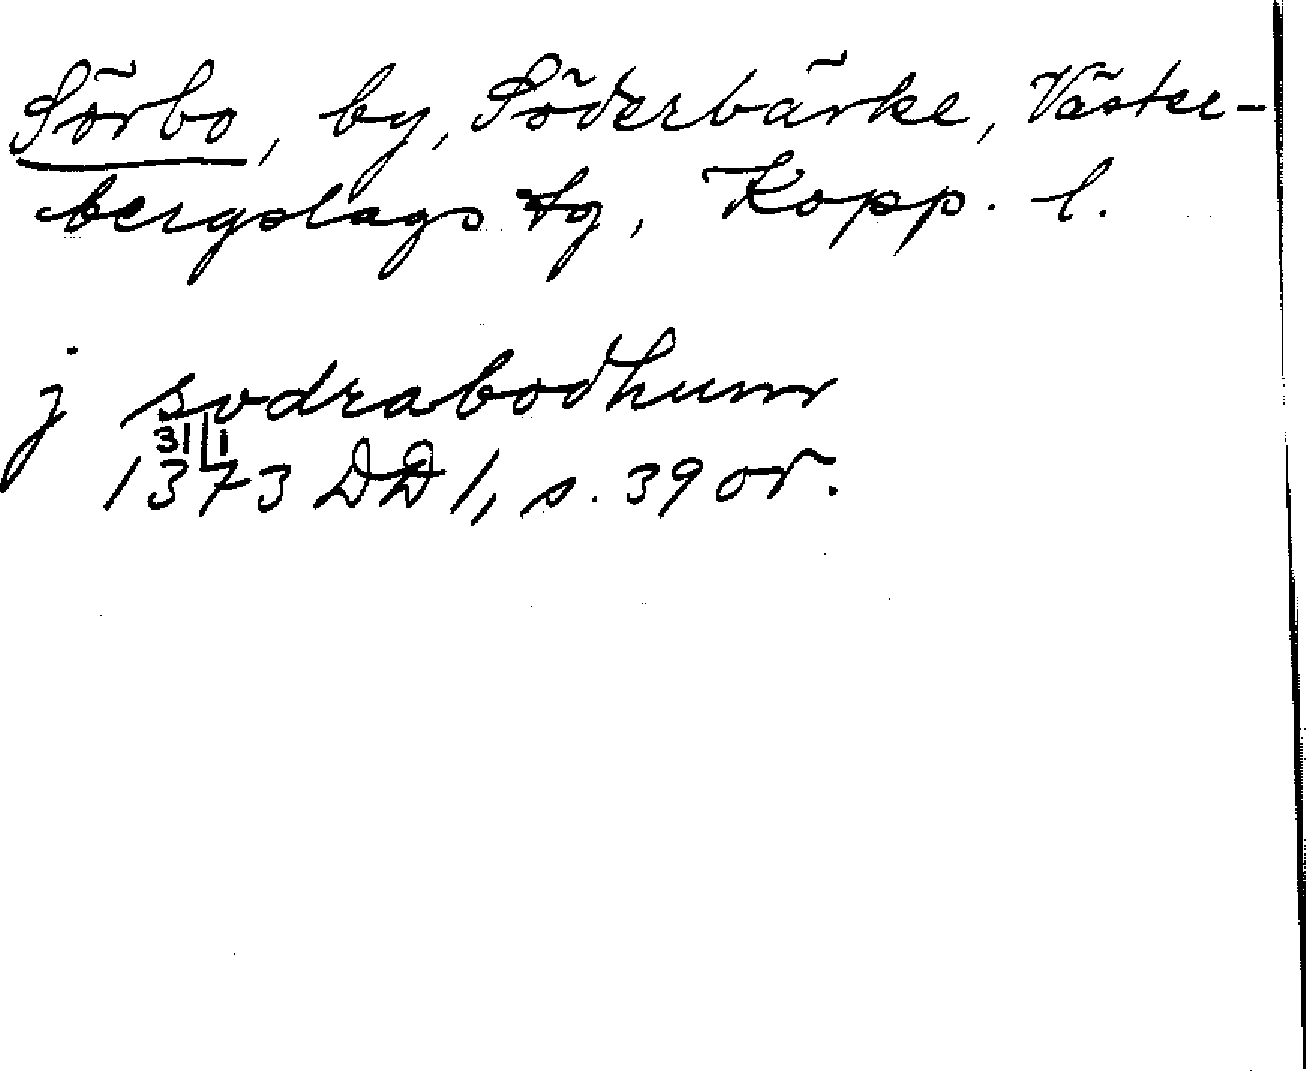 Sörbo, by, Söderbärke, Väster-
bergslags tg, Kopp. l.
j sudrabodhum
31 1
1373 DD 1, s. 39 or.